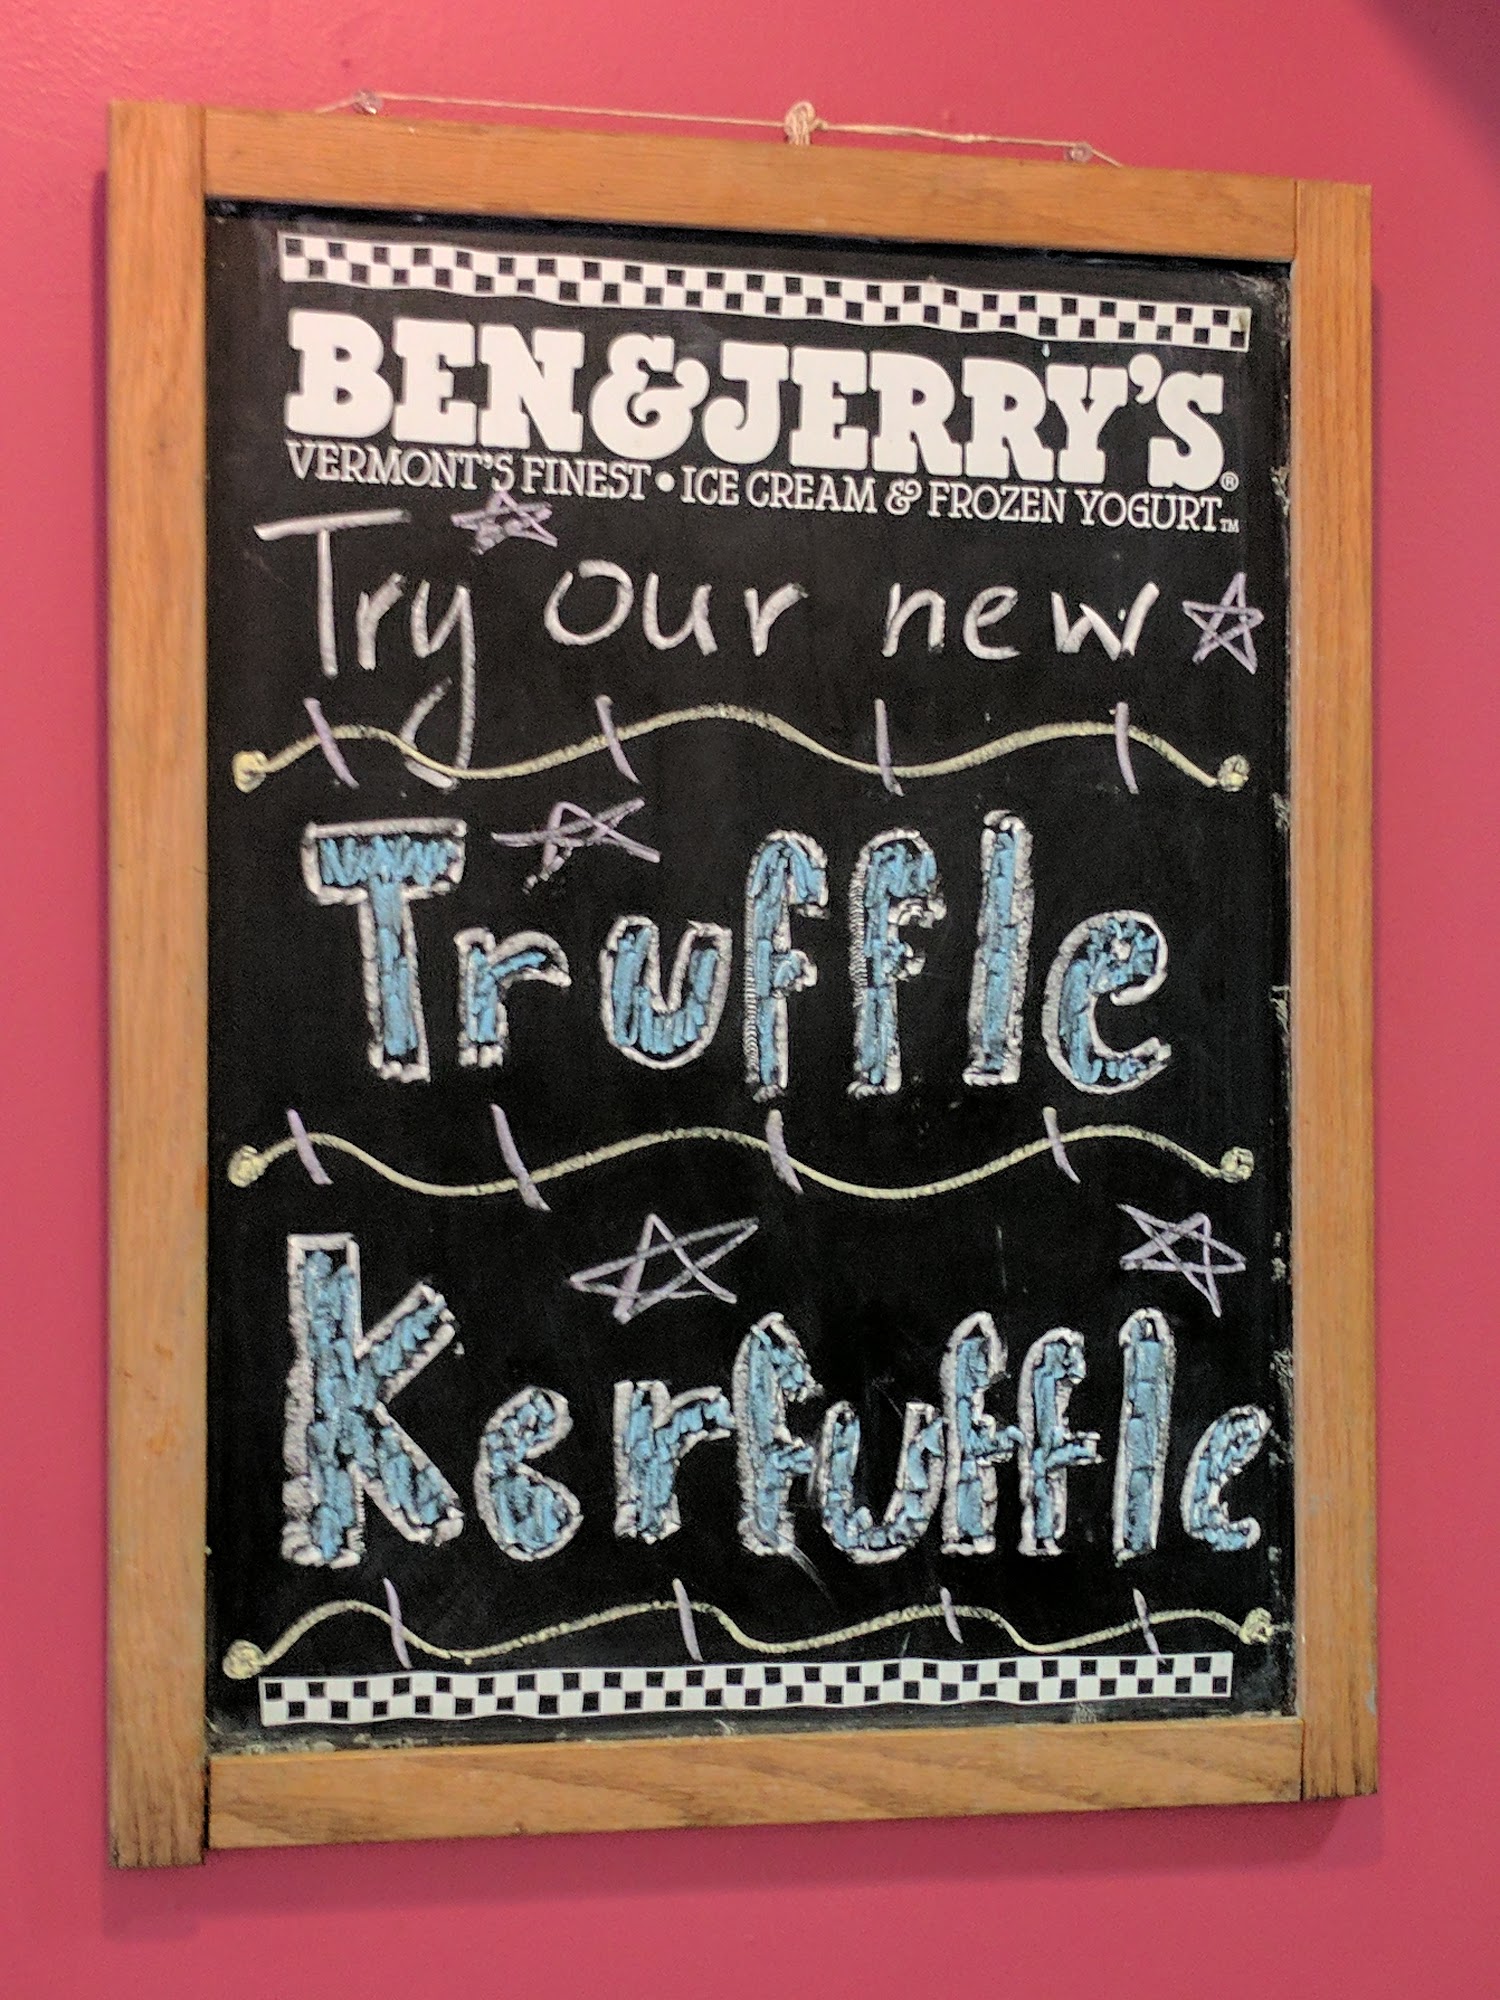 BEN & JERRY'S®
VERMONT'S FINEST • ICE CREAM & FROZEN YOGURT™
Try our new
Truffle
Kerfuffle